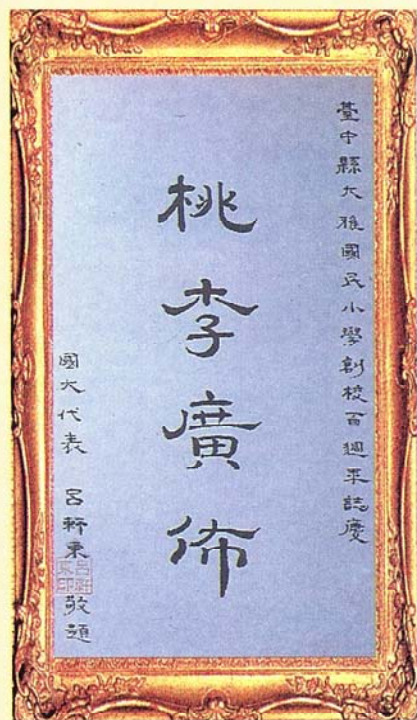 臺中縣大雅國民小學創校百週年誌慶
桃李廣佈
國大代表 呂軒東 敬題